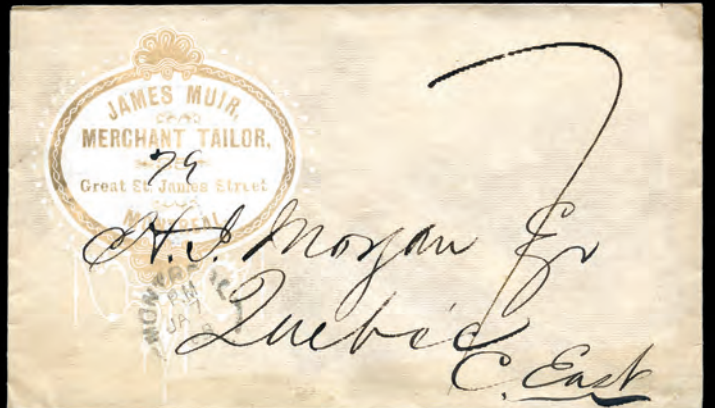 JAMES MUIR,
MERCHANT TAILOR,
79
Great St. James Street
MONTREAL
H. J. Morgan Esr
Quebec
C. East
MONTREAL
P.M
JA 7
7